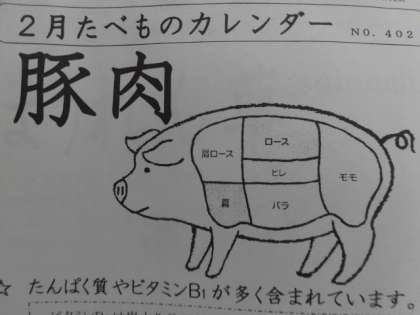 2月たべものカレンダー NO. 402
豚肉
肩ロース
ロース
ヒレ
モモ
肩
バラ
☆ たんぱく質やビタミンB1が多く含まれています。